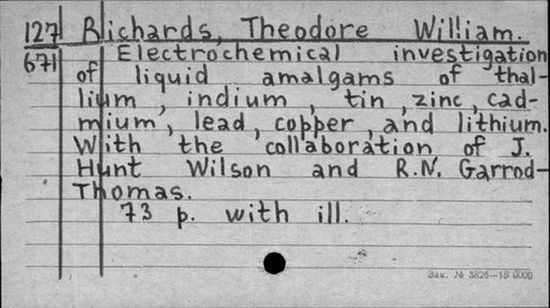 127 Richards, Theodore William.
671 Electrochemical investigation
of liquid amalgams of thal-
lium, indium, tin, zinc, cad-
mium, lead, copper, and lithium.
With the collaboration of J.
Hunt Wilson and R.N. Garrod-
Thomas.
73 p. with ill.
Зак. № 3826—15 0000